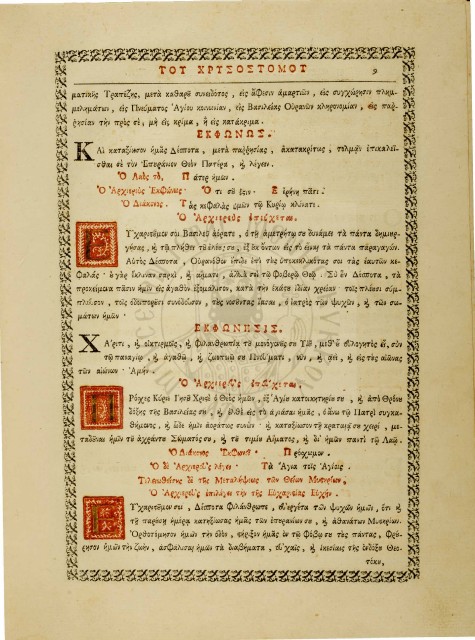 ΤΟΥ ΧΡΥΣΟΣΤΟΜΟΥ 9
ματικῆς Τραπέζης, μετὰ καθαρᾶ συνειδότος, εἰς ἄφεσιν ἁμαρτιῶν, εἰς συγχώρησιν πλημ-
μελημάτων, εἰς Πνεύματος Ἁγίου κοινωνίαν, εἰς Βασιλείας Οὐρανῶν κληρονομίαν, εἰς παῤ-
ῥησίαν τὴν πρὸς σὲ, μὴ εἰς κρίμα, ἢ εἰς κατάκριμα.
ΕΚΦΩΝΩΣ.
Καὶ καταξίωσον ἡμᾶς Δέσποτα, μετὰ παῤῥησίας, ἀκατακρίτως, τολμᾷν ἐπικαλεῖ-
σθαι σὲ τὸν Ἐπουράνιον Θεὸν Πατέρα, καὶ λέγειν.
Ὁ Λαὸς τὸ, Πάτερ ἡμῶν.
Ὁ Ἀρχιερεὺς Ἐκφώνως· Ὅτι σοῦ ἐστιν· Εἰρήνη πᾶσι·
Ὁ Διάκονος· Τὰς κεφαλὰς ὑμῶν τῷ Κυρίῳ κλίνατε·
Ὁ Ἀρχιερεὺς ἐπεύχεται.
Εὐχαριστοῦμέν σοι Βασιλεῦ ἀόρατε, ὁ τῇ ἀμετρήτῳ σου δυνάμει τὰ πάντα δημιουρ-
γήσας, καὶ τῷ πλήθει τοῦ ἐλέους σου, ἐξ οὐκ ὄντων εἰς τὸ εἶναι τὰ πάντα παραγαγών.
Αὐτὸς Δέσποτα, Οὐρανόθεν ἔπιδε ἐπὶ τοὺς ὑποκεκλικότας σοι τὰς ἑαυτῶν κε-
φαλάς· οὐ γὰρ ἔκλιναν σαρκὶ, καὶ αἵματι, ἀλλὰ σοὶ τῷ φοβερῷ Θεῷ· Σὺ οὖν Δέσποτα, τὰ
προκείμενα πᾶσιν ἡμῖν εἰς ἀγαθὸν ἐξομάλισον, κατὰ τὴν ἑκάστου ἰδίαν χρείαν· τοῖς πλέουσι σύμ-
πλευσον, τοῖς ὁδοιποροῦσι συνόδευσον, τοὺς νοσοῦντας ἴασαι, ὁ ἰατρὸς τῶν ψυχῶν, καὶ τῶν σω-
μάτων ἡμῶν·
ΕΚΦΩΝΗΣΙΣ.
Χάριτι, καὶ οἰκτιρμοῖς, καὶ φιλανθρωπίᾳ τοῦ μονογενοῦς σου Υἱοῦ, μεθ' οὗ εὐλογητὸς εἶ, σὺν
τῷ παναγίῳ, καὶ ἀγαθῷ, καὶ ζωοποιῷ σου Πνεύματι, νῦν, καὶ ἀεὶ, καὶ εἰς τοὺς αἰῶνας
τῶν αἰώνων· Ἀμήν.
Ὁ Ἀρχιερεὺς ἐπεύχεται.
Πρόσχες Κύριε Ἰησοῦ Χριστὲ ὁ Θεὸς ἡμῶν, ἐξ Ἁγίου κατοικητηρίου σου, καὶ ἀπὸ Θρόνου
δόξης τῆς Βασιλείας σου, καὶ ἐλθὲ εἰς τὸ ἁγιάσαι ἡμᾶς, ὁ ἄνω τῷ Πατρὶ συγκα-
θήμενος, καὶ ὧδε ἡμῖν ἀοράτως συνών· καὶ καταξίωσον τῇ κραταιᾷ σου χειρὶ, με-
ταδοῦναι ἡμῖν τοῦ ἀχράντου Σώματός σου, καὶ τοῦ τιμίου Αἵματος, καὶ δι' ἡμῶν παντὶ τῷ Λαῷ.
Ὁ Διάκονος Ἐκφωνεῖ· Πρόσχωμεν.
Ὁ δὲ Ἀρχιερεὺς λέγει· Τὰ Ἅγια τοῖς Ἁγίοις.
Τελεσθείσης δὲ τῆς Μεταλήψεως τῶν Θείων Μυστηρίων.
Ὁ Ἀρχιερεὺς ἐπιλέγει τὴν τῆς Εὐχαριστίας Εὐχήν.
Εὐχαριστοῦμέν σοι, Δέσποτα Φιλάνθρωπε, εὐεργέτα τῶν ψυχῶν ἡμῶν, ὅτι καὶ
τῇ παρούσῃ ἡμέρᾳ κατηξίωσας ἡμᾶς τῶν ἐπουρανίων σου, καὶ ἀθανάτων Μυστηρίων.
Ὀρθοτόμησον ἡμῶν τὴν ὁδὸν, στήριξον ἡμᾶς ἐν τῷ φόβῳ σου τοὺς πάντας, Φρού-
ρησον ἡμῶν τὴν ζωὴν, ἀσφάλισαι ἡμῶν τὰ διαβήματα, εὐχαῖς, καὶ ἱκεσίαις τῆς ἐνδόξου Θεο-
τόκου,